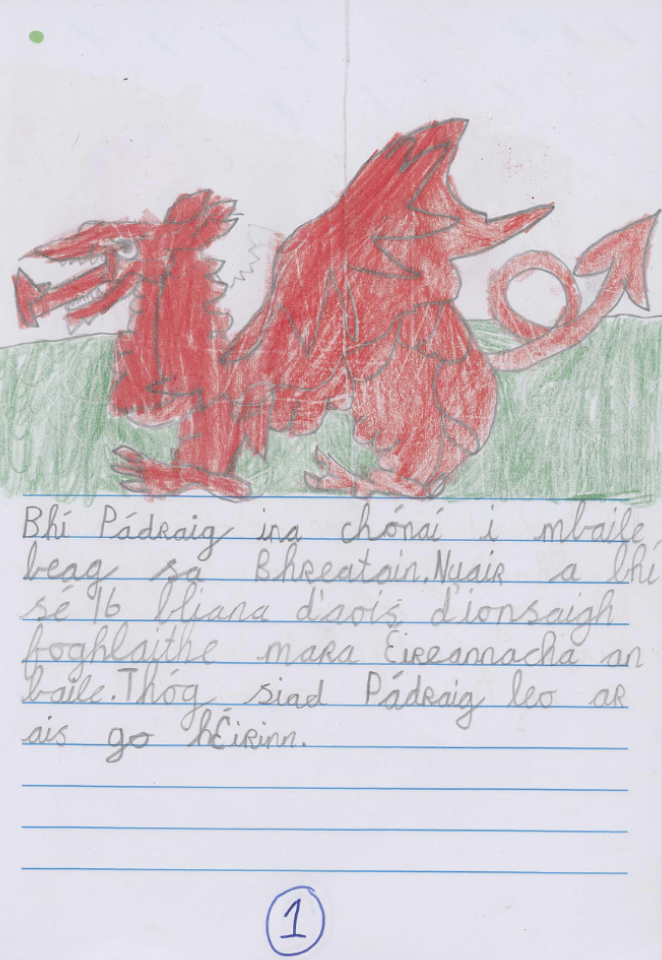 Bhí Pádraig ina chónaí i mbaile
beag sa Bhreatain. Nuair a bhí
sé 16 bliana d'aois d'ionsaigh
foghlaithe mara Éireannacha an
baile. Thóg siad Pádraig leo ar
ais go hÉirinn.
1